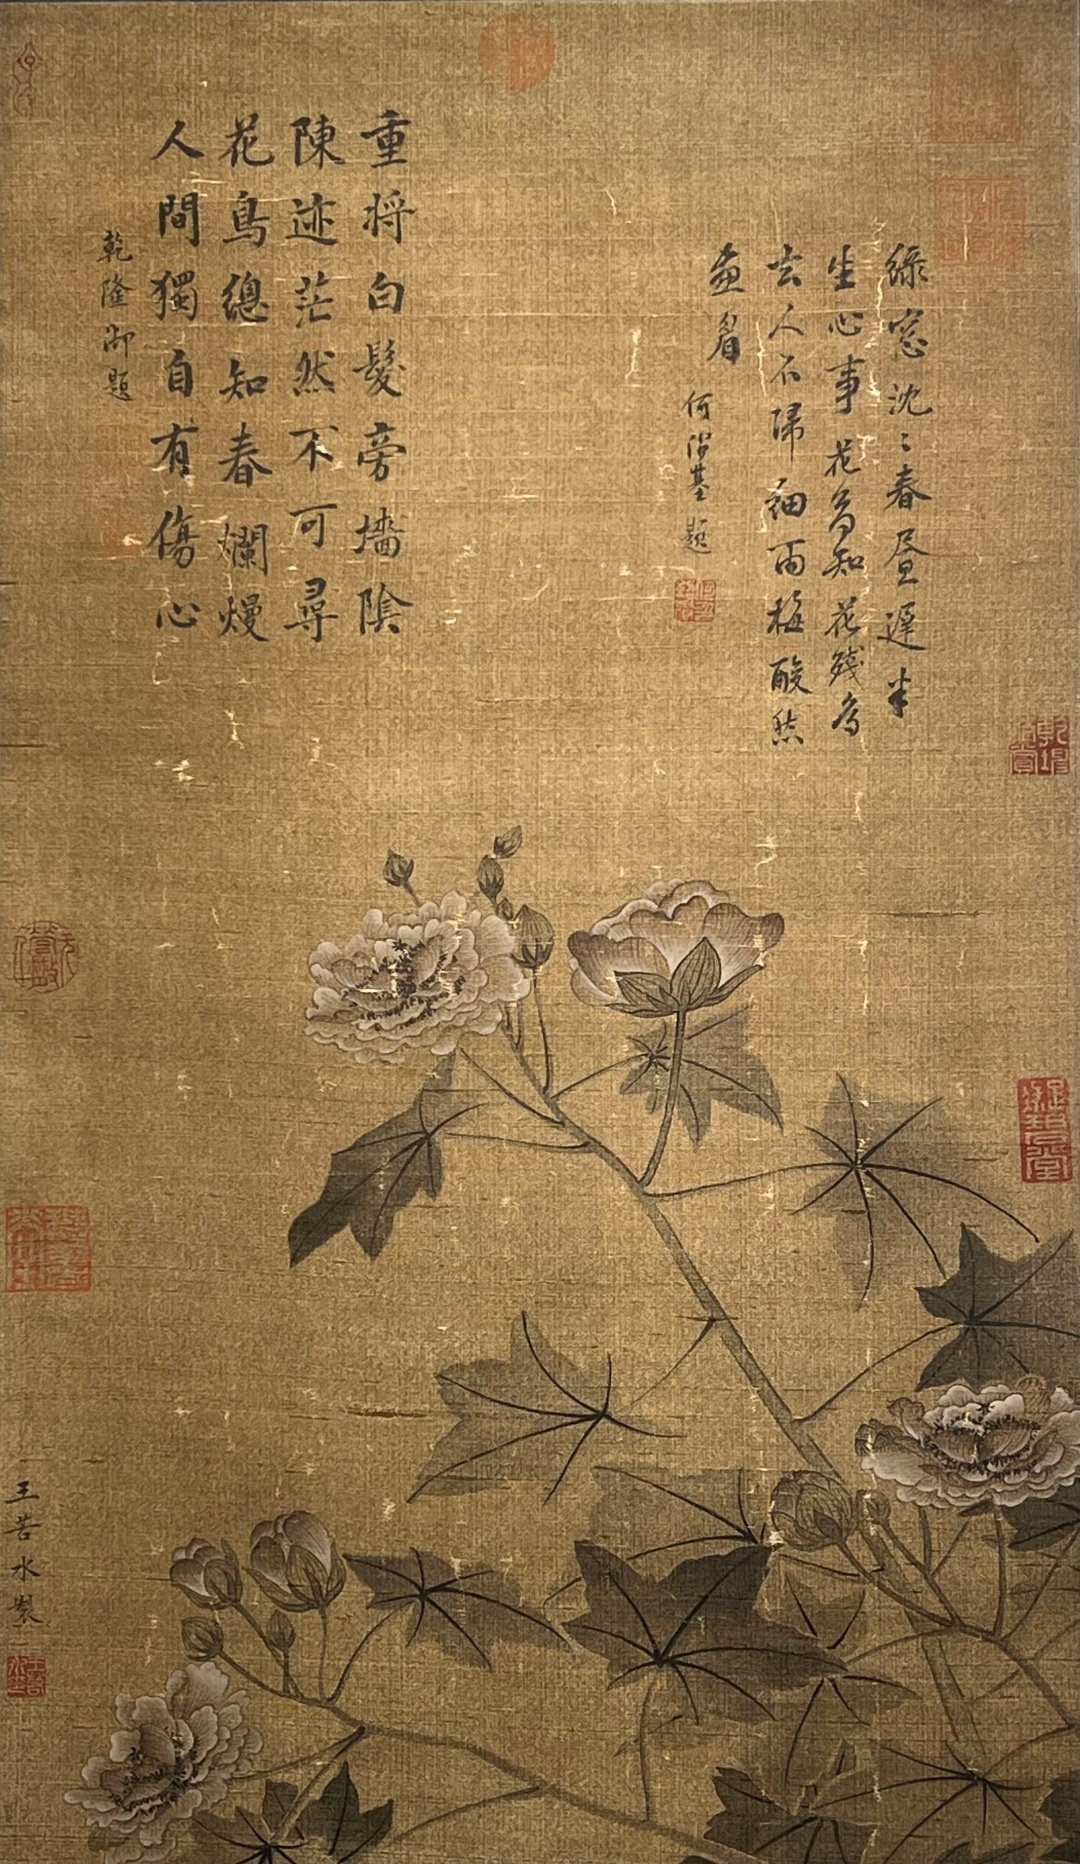 綠窓沈〻春昼遲半
生心事花鳥知花殘鳥
去人不歸細雨梅酸愁
画眉
何紹基題
重将白髮旁墻陰
陳迹茫然不可尋
花鳥總知春爛熳
人間獨自有傷心
乾隆御題
王若水製